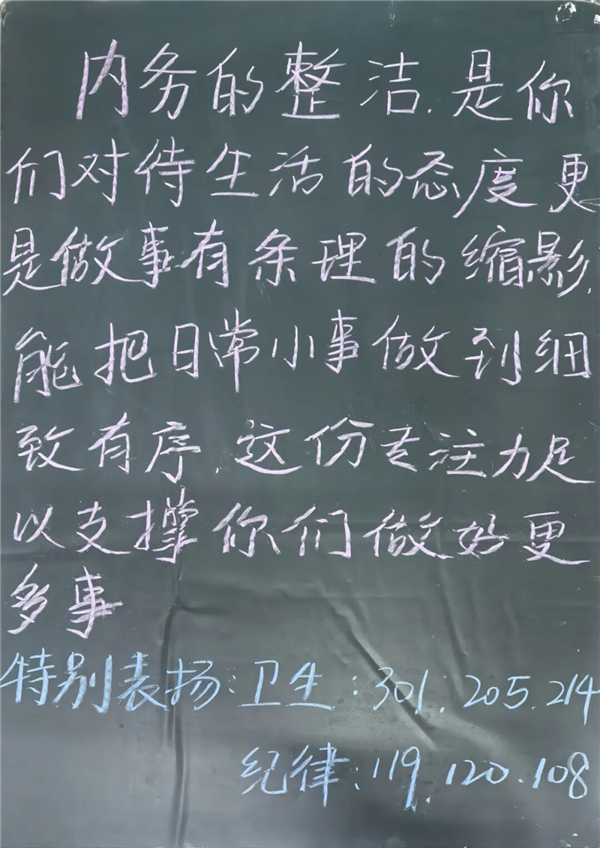 内务的整洁.是你
们对待生活的态度更
是做事有条理的缩影,
能把日常小事做到细
致有序.这份专注力足
以支撑你们做好更
多事
特别表扬:卫生:301.205.214
纪律:119.120.108